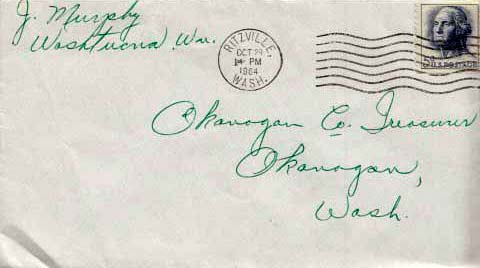 J. Murphy
Washtucna, Wn.
RITZVILLE,
OCT 29
PM
1964
WASH.
U.S. POSTAGE
Okanogan Co. Treasurer
Okanogan,
Wash.